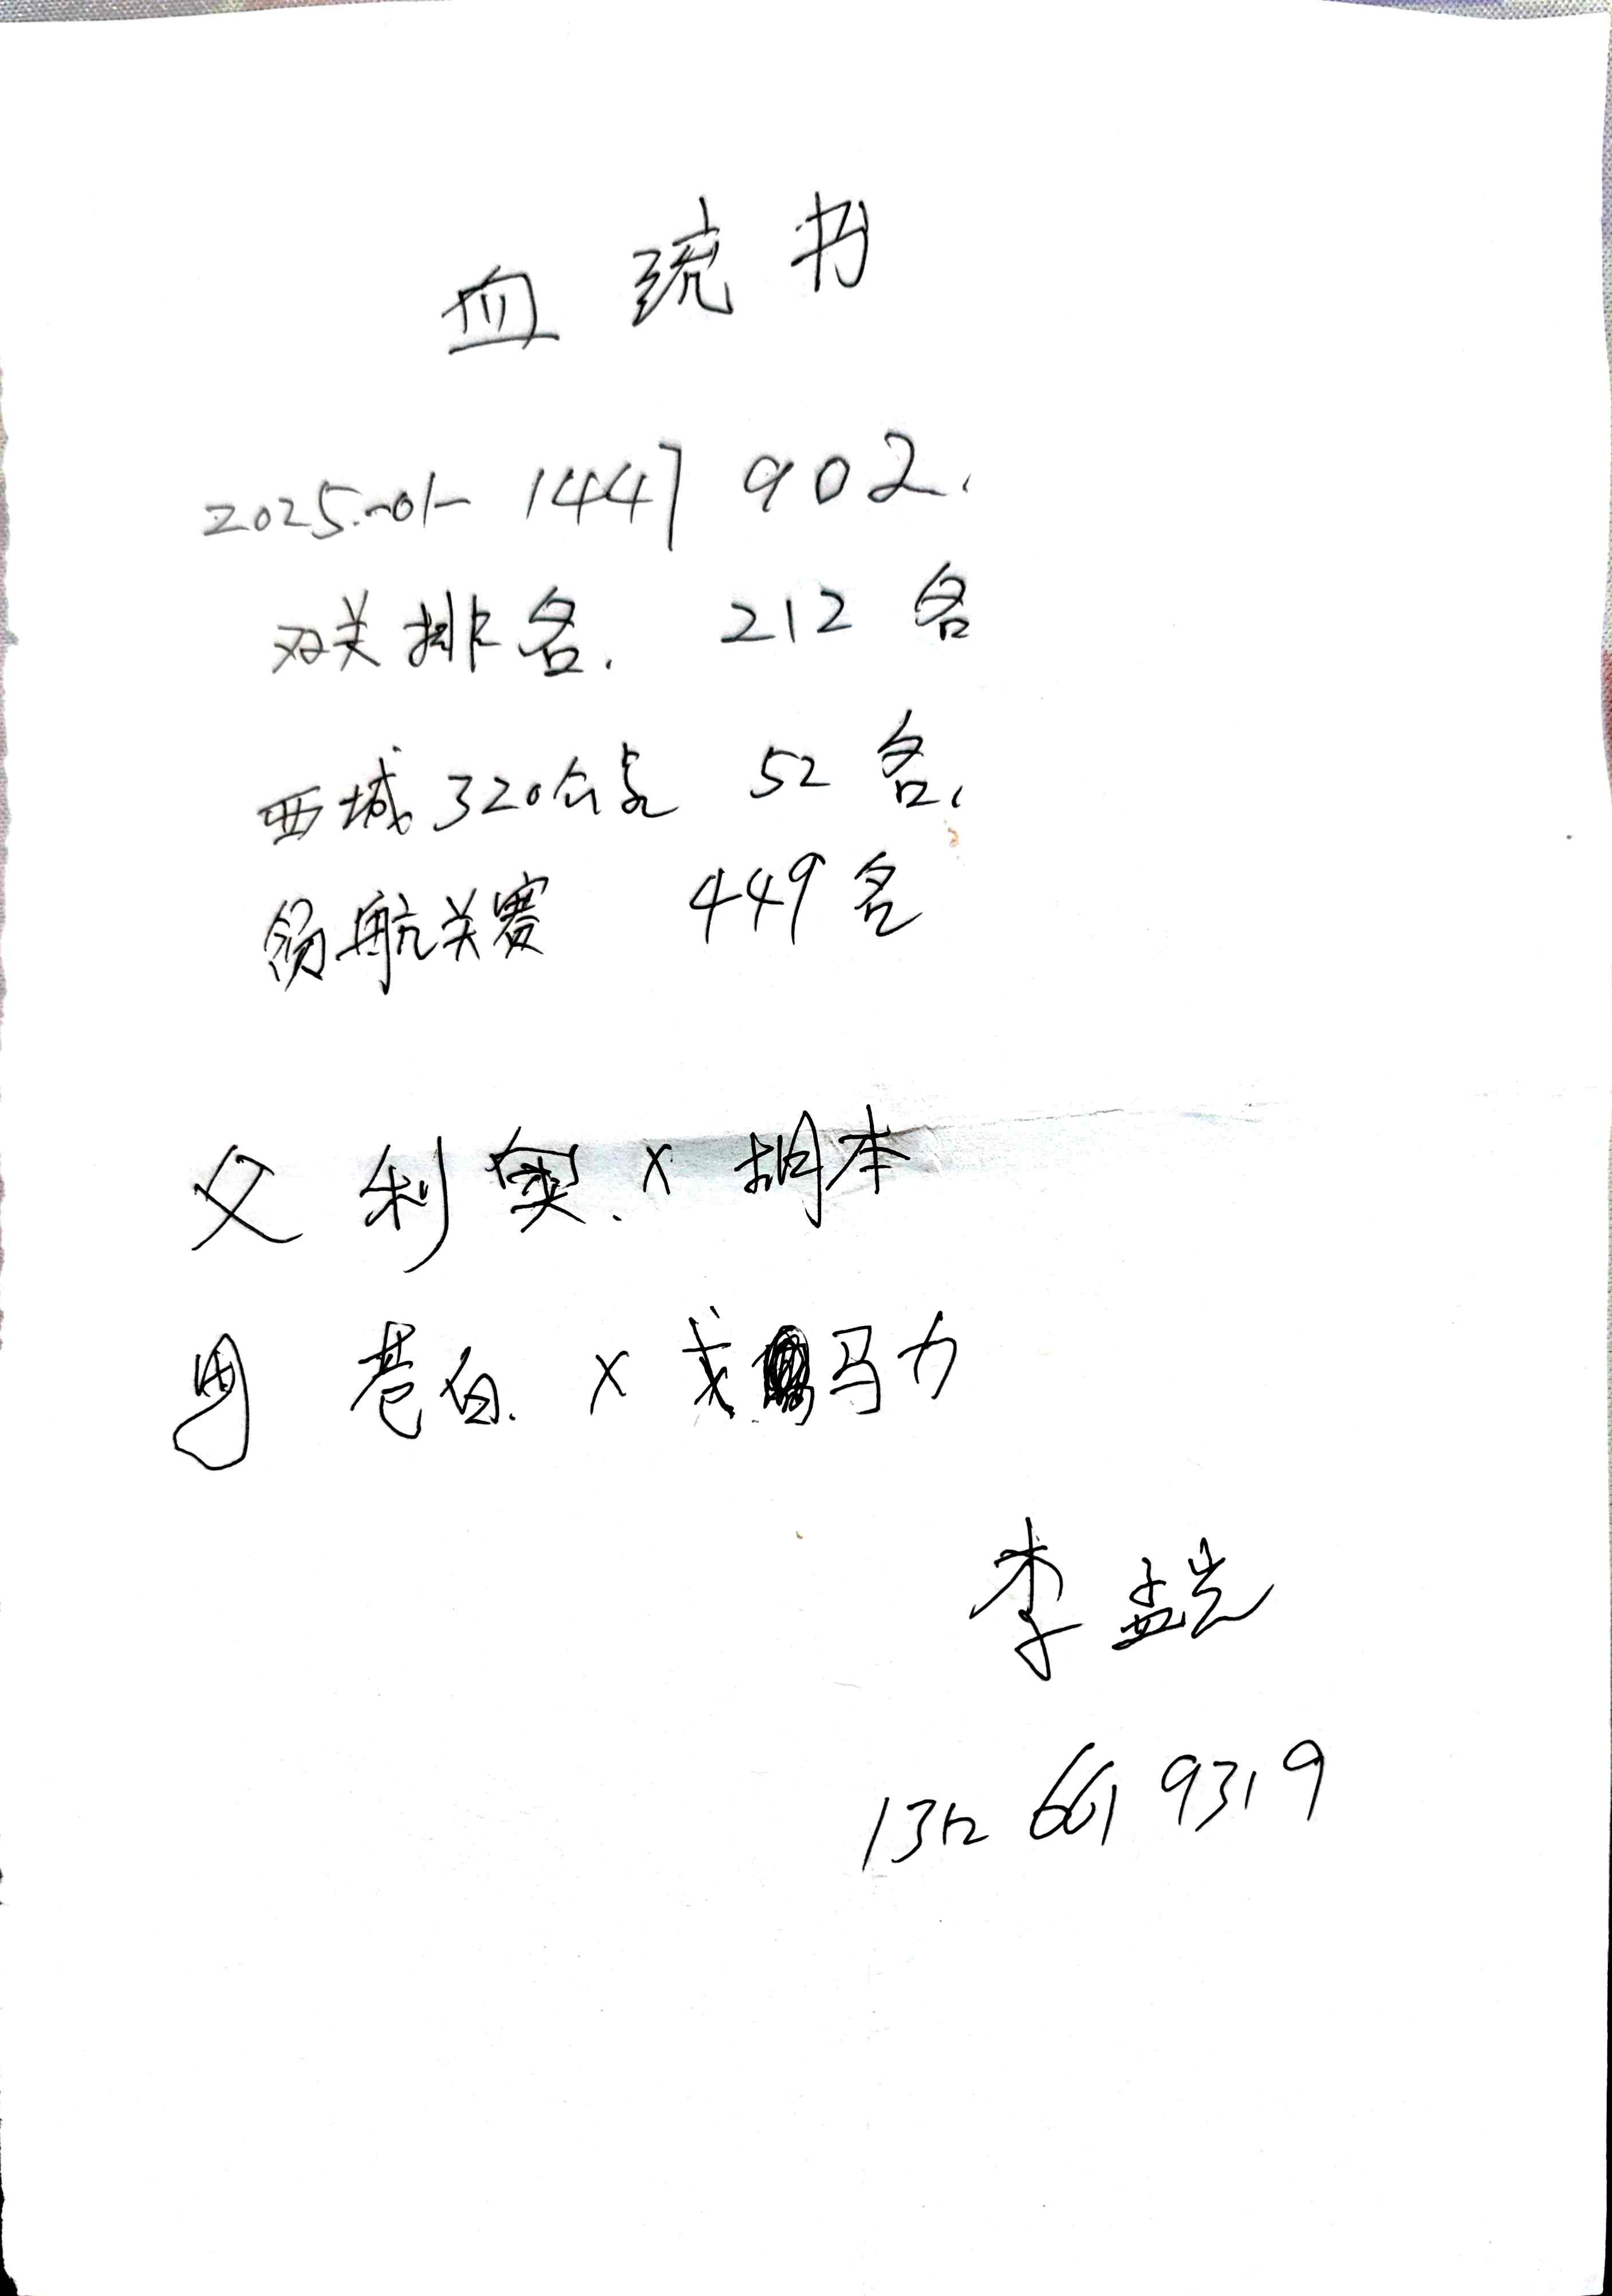 血统书
2025-01-1447902.
双关排名. 212名
西城320公里 52名.
领航关赛 449名
父 利奥. x 胡本
母 巷白. x 戈马力
李孟光
1312 661 9319